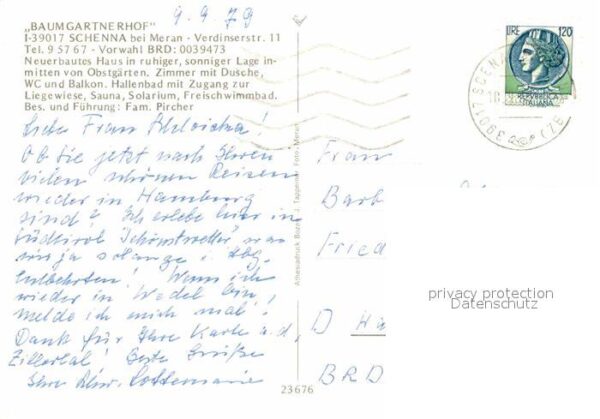 9.9.79
„BAUMGARTNERHOF"
I-39017 SCHENNA bei Meran - Verdinserstr. 11
Tel. 9 57 67 - Vorwahl BRD: 0039473
Neuerbautes Haus in ruhiger, sonniger Lage in-
mitten von Obstgärten. Zimmer mit Dusche,
WC und Balkon. Hallenbad mit Zugang zur
Liegewiese, Sauna, Solarium, Freischwimmbad.
Bes. und Führung: Fam. Pircher
Liebe Frau
Ob Sie jetzt nach Ihren
vielen schönen Reisen
wieder in Hamburg
sind? Ich erlebe hier in
Südtirol "Schönstwetter", was
wir ja solange i. Hbg.
entbehrten! Wenn ich
wieder in Wedel bin,
melde ich mich mal!
Dank für Ihre Karte a. d.
Zillertal! Beste Grüße
Ihre Lottemarie
23676
Tappeiner Foto - Meran
LIRE 120
REPVBBLICA
ITALIANA
39017 SCENA
Frau
Barb
Fried
D Ha
BRD
privacy protection
Datenschutz